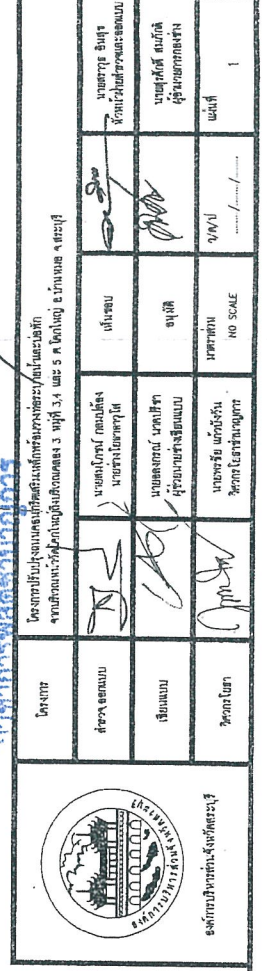 องค์การบริหารส่วนจังหวัดสระบุรี
องค์การบริหารส่วนจังหวัดสระบุรี
โครงการ
โครงการปรับปรุงถนนคอนกรีตเสริมเหล็กพร้อมวางท่อระบายน้ำและบ่อพัก
จากบริเวณหน้าวัดโคกใหญ่ถึงบริเวณคลอง 3 หมู่ที่ 3,4 และ 5 ต.โคกใหญ่ อ.บ้านหมอ จ.สระบุรี
สำรวจ ออกแบบ
นายช่างโยธาอาวุโส
เห็นชอบ
หัวหน้าฝ่ายสำรวจและออกแบบ
เขียนแบบ
ผู้ช่วยนายช่างเขียนแบบ
อนุมัติ
นายสุรศักดิ์ สมภักดี
ผู้อำนวยการกองช่าง
วิศวกรโยธา
นายพรชัย แก้วบังวัน
วิศวกรโยธาชำนาญการ
มาตราส่วน
NO SCALE
ว/ด/ป
....../....../......
แผ่นที่
1